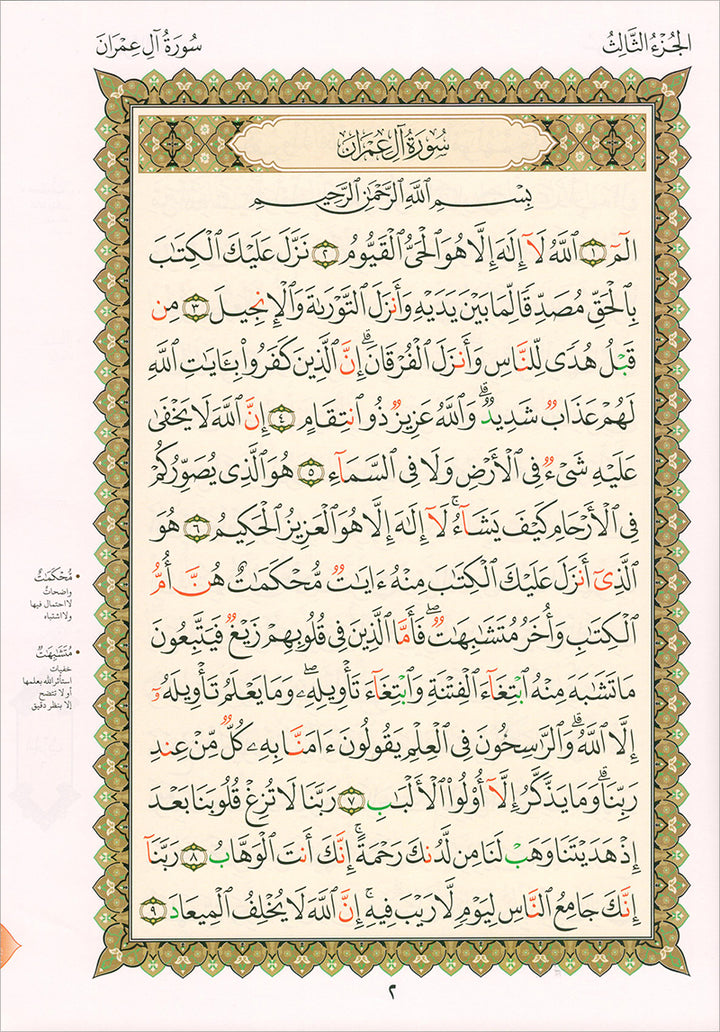 الجُزْءُ الثَّالِثُ
سُورَةُ آلِ عِمْرَانَ
سُورَةُ آلِ عِمْرَانَ
بِسْمِ ٱللَّهِ ٱلرَّحْمَٰنِ ٱلرَّحِيمِ
الٓمٓ ١ ٱللَّهُ لَآ إِلَٰهَ إِلَّا هُوَ ٱلْحَىُّ ٱلْقَيُّومُ ٢ نَزَّلَ عَلَيْكَ ٱلْكِتَٰبَ
بِٱلْحَقِّ مُصَدِّقًا لِّمَا بَيْنَ يَدَيْهِ وَأَنزَلَ ٱلتَّوْرَىٰةَ وَٱلْإِنجِيلَ ٣ مِن
قَبْلُ هُدًى لِّلنَّاسِ وَأَنزَلَ ٱلْفُرْقَانَ ۗ إِنَّ ٱلَّذِينَ كَفَرُوا۟ بِـَٔايَٰتِ ٱللَّهِ
لَهُمْ عَذَابٌ شَدِيدٌ ۗ وَٱللَّهُ عَزِيزٌ ذُو ٱنتِقَامٍ ٤ إِنَّ ٱللَّهَ لَا يَخْفَىٰ
عَلَيْهِ شَىْءٌ فِى ٱلْأَرْضِ وَلَا فِى ٱلسَّمَآءِ ٥ هُوَ ٱلَّذِى يُصَوِّرُكُمْ
فِى ٱلْأَرْحَامِ كَيْفَ يَشَآءُ ۚ لَآ إِلَٰهَ إِلَّا هُوَ ٱلْعَزِيزُ ٱلْحَكِيمُ ٦ هُوَ
ٱلَّذِىٓ أَنزَلَ عَلَيْكَ ٱلْكِتَٰبَ مِنْهُ ءَايَٰتٌ مُّحْكَمَٰتٌ هُنَّ أُمُّ
ٱلْكِتَٰبِ وَأُخَرُ مُتَشَٰبِهَٰتٌ ۖ فَأَمَّا ٱلَّذِينَ فِى قُلُوبِهِمْ زَيْغٌ فَيَتَّبِعُونَ
مَا تَشَٰبَهَ مِنْهُ ٱبْتِغَآءَ ٱلْفِتْنَةِ وَٱبْتِغَآءَ تَأْوِيلِهِۦ ۗ وَمَا يَعْلَمُ تَأْوِيلَهُۥٓ
إِلَّا ٱللَّهُ ۗ وَٱلرَّٰسِخُونَ فِى ٱلْعِلْمِ يَقُولُونَ ءَامَنَّا بِهِۦ كُلٌّ مِّنْ عِندِ
رَبِّنَا ۗ وَمَا يَذَّكَّرُ إِلَّآ أُو۟لُوا۟ ٱلْأَلْبَٰبِ ٧ رَبَّنَا لَا تُزِغْ قُلُوبَنَا بَعْدَ
إِذْ هَدَيْتَنَا وَهَبْ لَنَا مِن لَّدُنكَ رَحْمَةً ۚ إِنَّكَ أَنتَ ٱلْوَهَّابُ ٨ رَبَّنَآ
إِنَّكَ جَامِعُ ٱلنَّاسِ لِيَوْمٍ لَّا رَيْبَ فِيهِ ۚ إِنَّ ٱللَّهَ لَا يُخْلِفُ ٱلْمِيعَادَ ٩
• مُّحْكَمَٰتٌ
واضحاتٌ
لا احتمال فيها
ولا اشتباه
• مُتَشَٰبِهَٰتٌ
خفيات
استأثر الله بعلمها
أو لا تتضح
إلا بنظر دقيق
٢